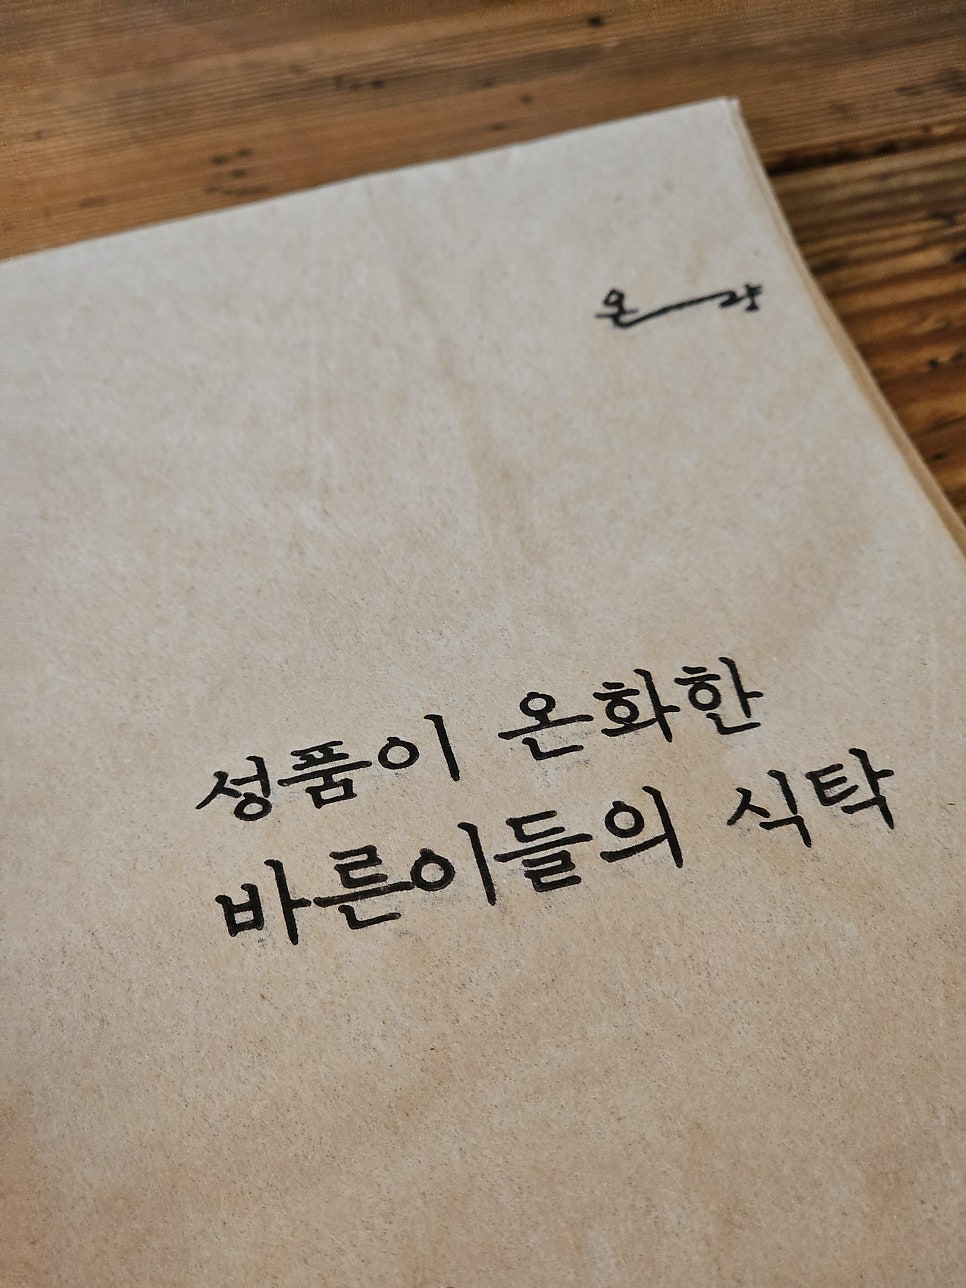 온량
성품이 온화한
바른이들의 식탁